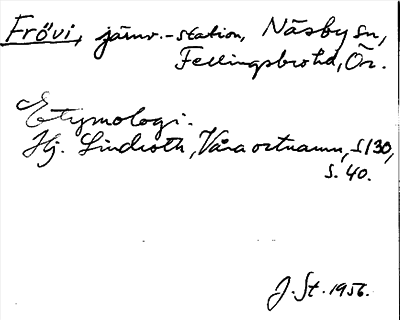 Frövi, järnv.-station, Näsby sn,
Fellingsbro hd, Ör.
Etymologi.
Hj. Lindroth, Våra ortnamn, s. 130,
s. 40.
J. St. 1956.